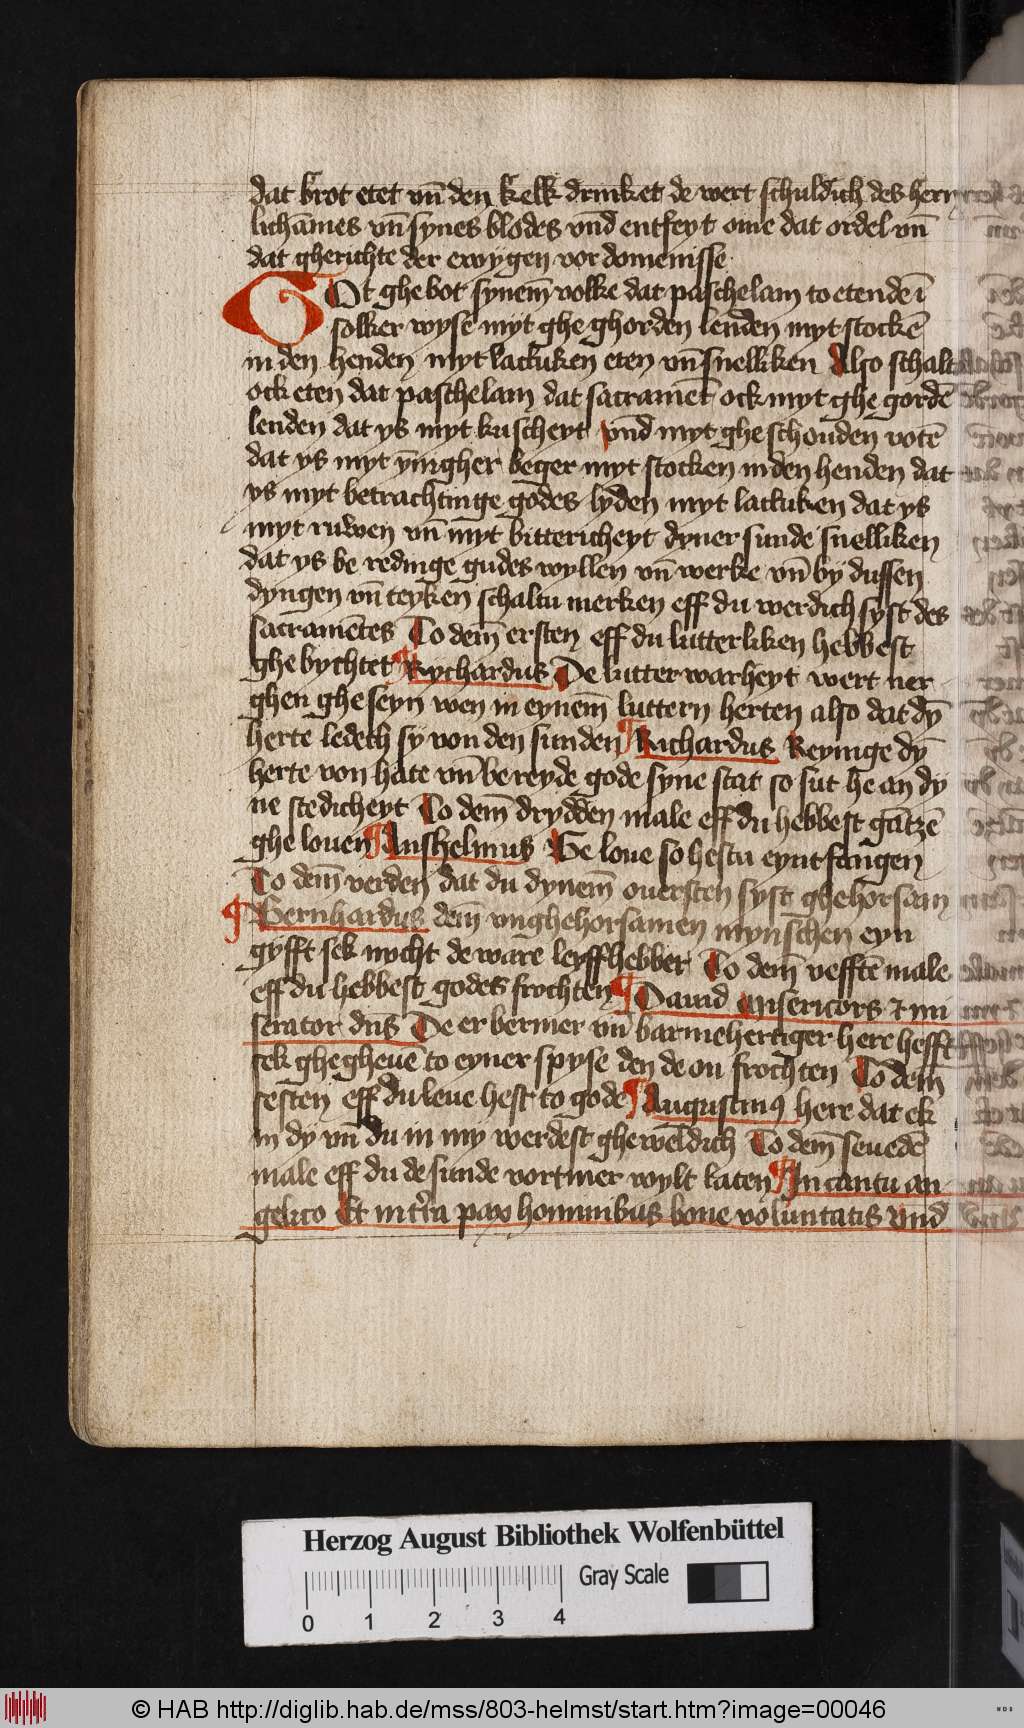 dat brot etet vn̄ den kelk drinket de wert schuldich des hern
lichāmes vn̄ synes blodes vnd entfeyt ome dat ordel vn̄
dat gherichte der ewygen vordomenisse
Got ghebot synem̄ volke dat paschelam to etende ī
solker wyse myt ghe ghorden lenden myt stockē
in den henden myt lactuken eten vn̄ snelliken Also schaltu
ock eten dat paschelam dat sacramēt ock myt ghe gordē
lenden dat ys myt kuscheyt vnd myt ghe schouden votē
dat ys myt ȳnigher beger myt stocken in den henden dat
ys myt betrachtinge godes lyden myt lactuken dat ys
myt ruwen vn̄ myt bittericheyt dyner sunde snelliken
dat ys be redinge gudes wyllen vn̄ werke vn̄ by dussen
dyngen vn̄ teyken schaltu merken eff du werdich syst des
sacramētes To dem̄ ersten eff du lutterliken hebbest
ghe bychtet Rychardus De lutter warheyt wert ner
ghen ghe seyn wen in eynem̄ luttern herten also dat dȳ
herte ledech sy von den sunden Richardus Reynige dȳ
herte von hate vn̄ be reyde gode syne stat so sut he an dy
ne stedicheyt To dem̄ drydden male eff du hebbest gātzē
ghe louen Anshelmus Ge loue so hestu eynt fangen
To dem̄ verden dat du dynem̄ ouersten syst ghehorsam
Bernhardus dem̄ vnghehorsamen mynschen eyn
gyfft sek nycht de ware leyffhebber To dem̄ vefftē male
eff du hebbest godes frochten Dauid Misericors & mi
serator dn̄s De er bermer vn̄ barmehertiger here hefft
sek ghegheuē to eyner spyse den de on frochten To dem̄
sesten eff du leue hest to gode Augustinꝯ here dat ek
in dy vn̄ du in my werdest ghe weldich To dem̄ seuedē
male eff du de sunde vortmer wylt laten In cantu an
gelico Et in tr̄ra pax hominibus bone voluntatis Vnd
Herzog August Bibliothek Wolfenbüttel
Gray Scale
0 1 2 3 4
© HAB http://diglib.hab.de/mss/803-helmst/start.htm?image=00046